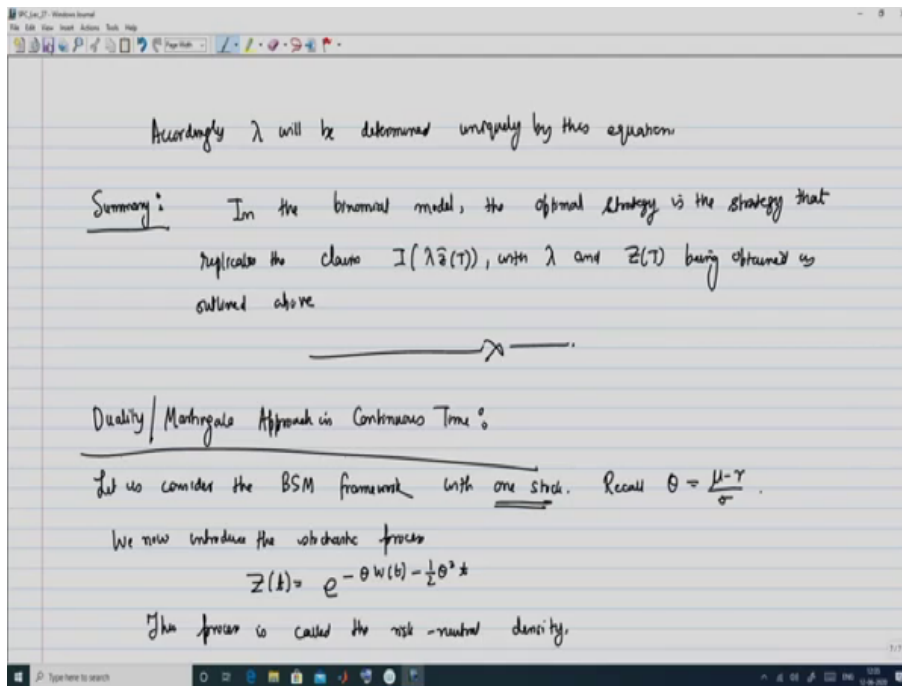 SPC_Lec_27 - Windows Journal
File Edit View Insert Actions Tools Help
Page Width
Accordingly λ will be determined uniquely by this equation.
Summary: In the binomial model, the optimal strategy is the strategy that
replicates the claim I(λẑ(T)), with λ and Z(T) being obtained as
outlined above
Duality/Martingale Approach in Continuous Time:
Let us consider the BSM framework with one stock. Recall θ = (μ-r)/σ.
We now introduce the stochastic process
Z(t) = e^{-θW(t) - ½θ²t}
This process is called the risk-neutral density.
7/7
Type here to search
ENG
12:05
12-06-2020